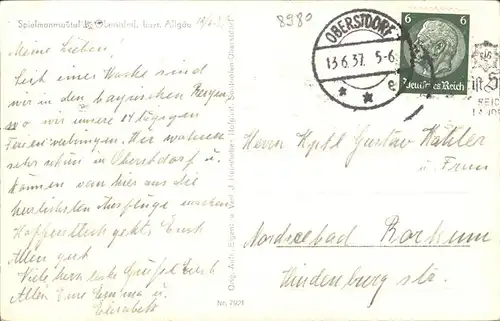 Spielmannsau b. Oberstdorf, bayr. Allgäu
8980
Meine Lieben!
Seit einer Woche sind
wir in den bayrischen Bergen
wo wir unsere 14 tägigen
Ferien verbringen. Wir wohnen
sehr schön in Oberstdorf u.
können von hier aus die
herrlichsten Ausflüge machen
Hoffentlich geht's Euch
Allen gut
Viele herzliche Grüße Euch
Allen Eure Emma u.
Elisabeth
Orig.-Aufn. Eigent. u. Verl. J. Heimhuber, Hofphot. Sonthofen-Oberstdorf
Nr. 7921
OBERSTDORF
13.6.37. 5-6
e
6 6
Deutsches Reich
Herrn Hptl Gustav
u. Frau
Nordseebad Borkum
Hindenburg str.